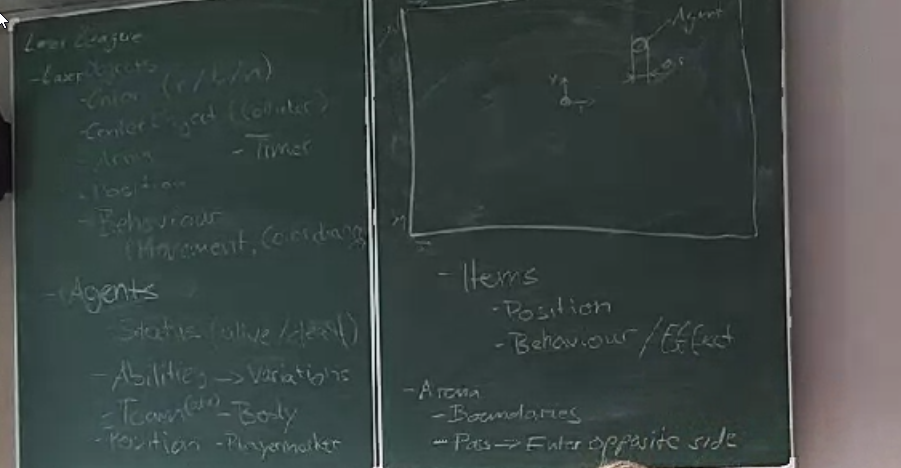 Laser League
- Laser Objects
- Color (r/b/n)
- Center Object (Collider)
- Arms
- Timer
- Position
- Behaviour
(Movement, Colorchange
- Agents
- Status (alive/dead)
- Abilities → Variations
- Team - Body
- Position - Playermarker
Agent
- Items
- Position
- Behaviour / Effect
- Arena
- Boundaries
- Pass → Enter opposite side